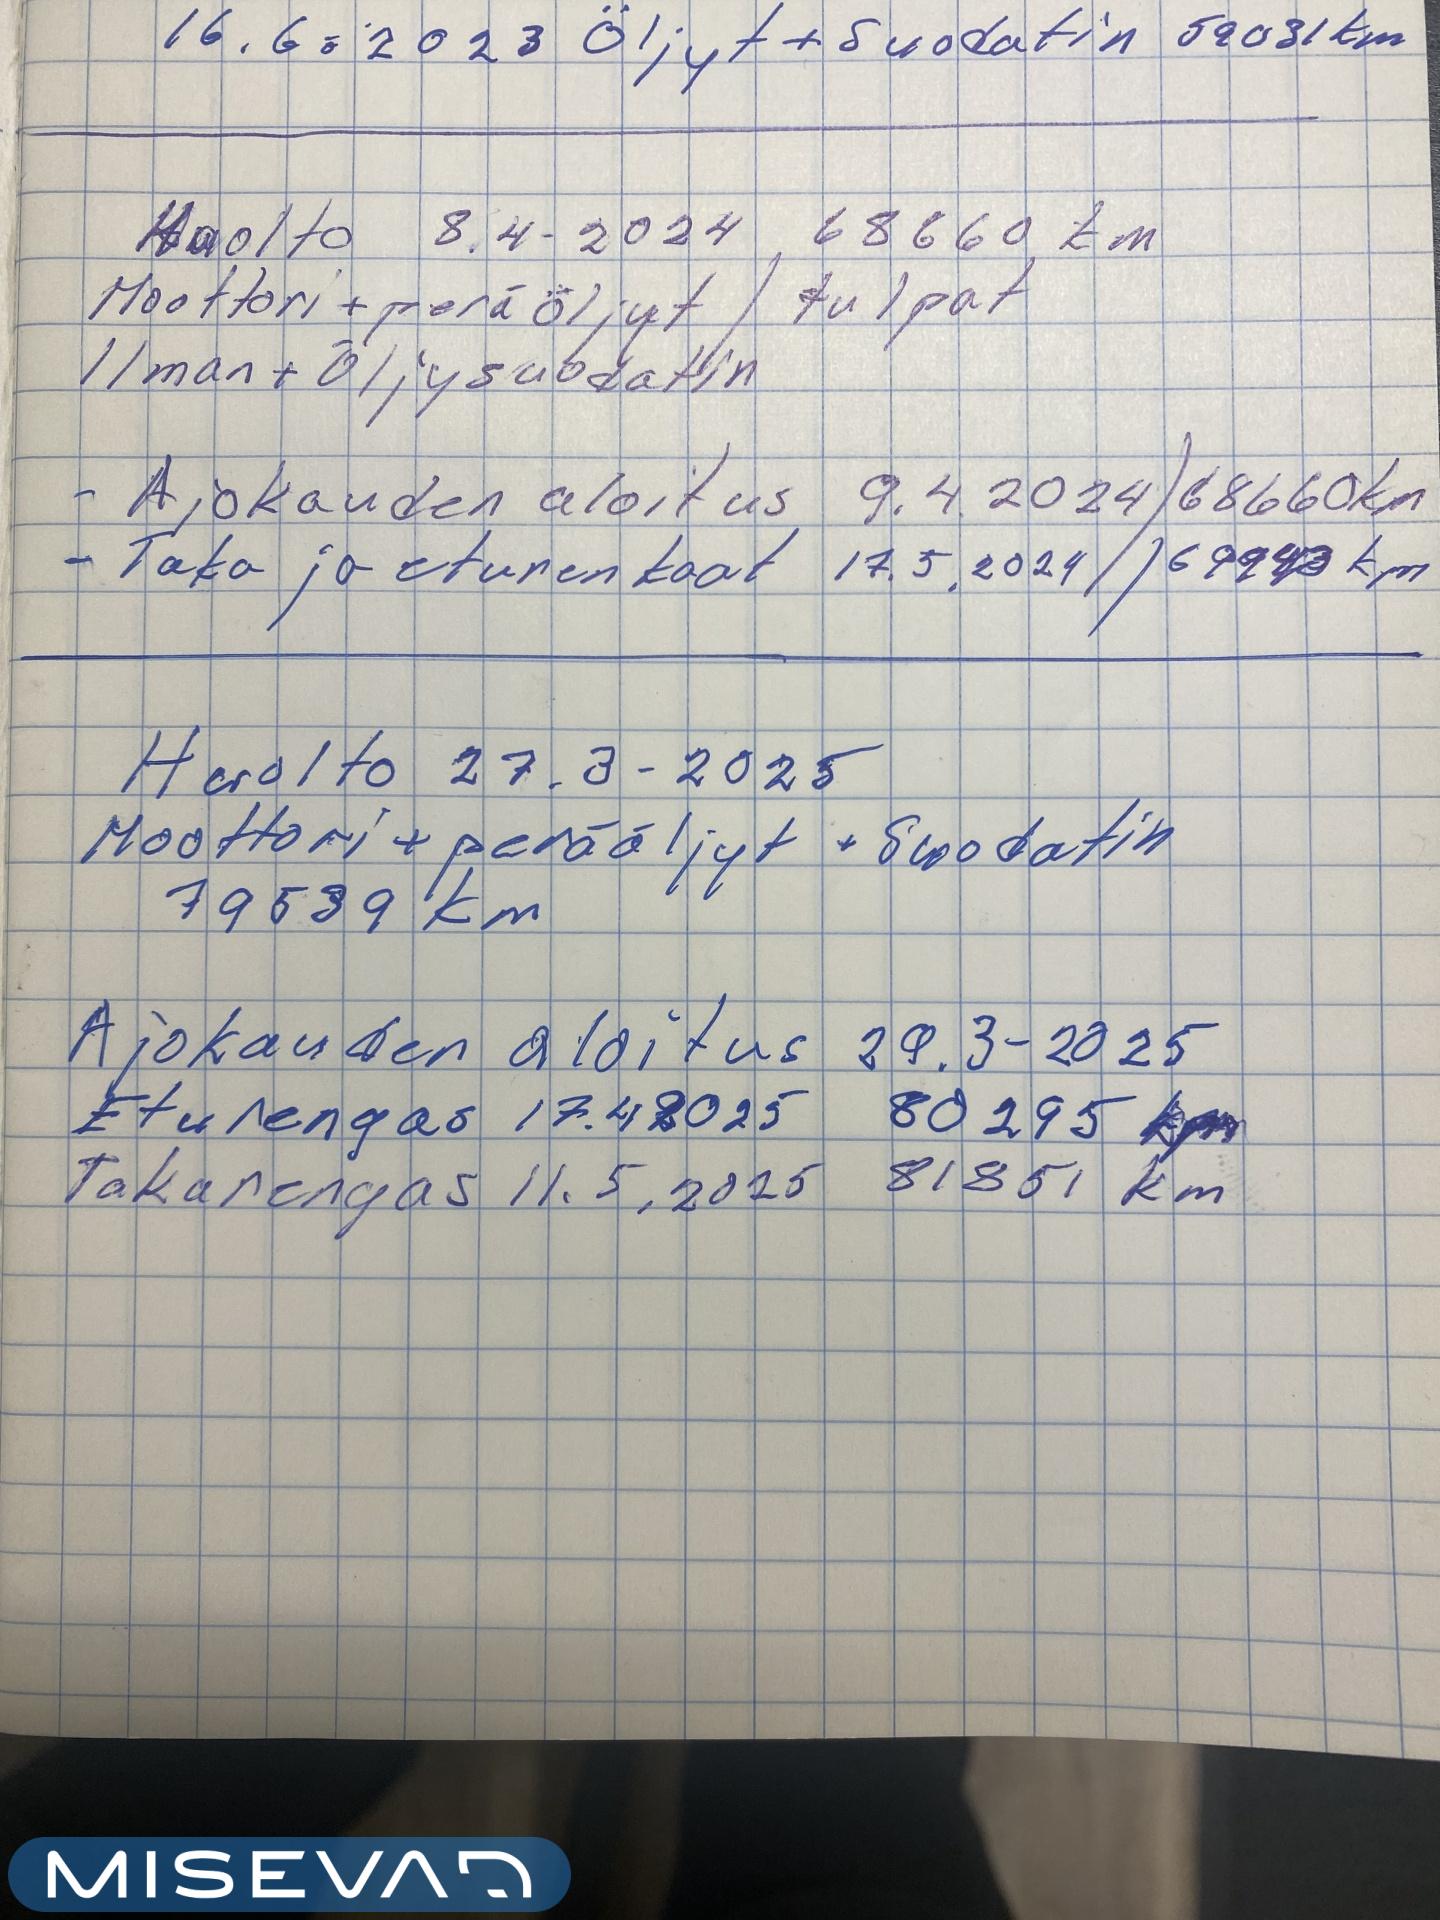 16.6.2023 Öljyt + Suodatin 59031 km
Huolto 8.4-2024 68660 km
Moottori + peräöljyt / tulpat
Ilman + Öljysuodatin
- Ajokauden aloitus 9.4.2024 / 68660 km
- Taka ja eturenkaat 17.5.2024 / km
Huolto 27.3-2025
Moottori + peräöljyt + Suodatin
79539 km
Ajokauden aloitus 29.3-2025
Eturengas 17.4.2025 80295 km
Takarengas 11.5.2025 81851 km
MISEVAD